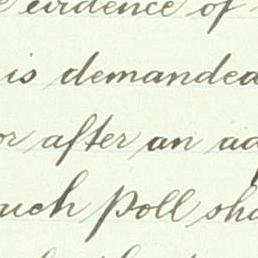 evidence of
is demanded
or after an ad
such poll sha